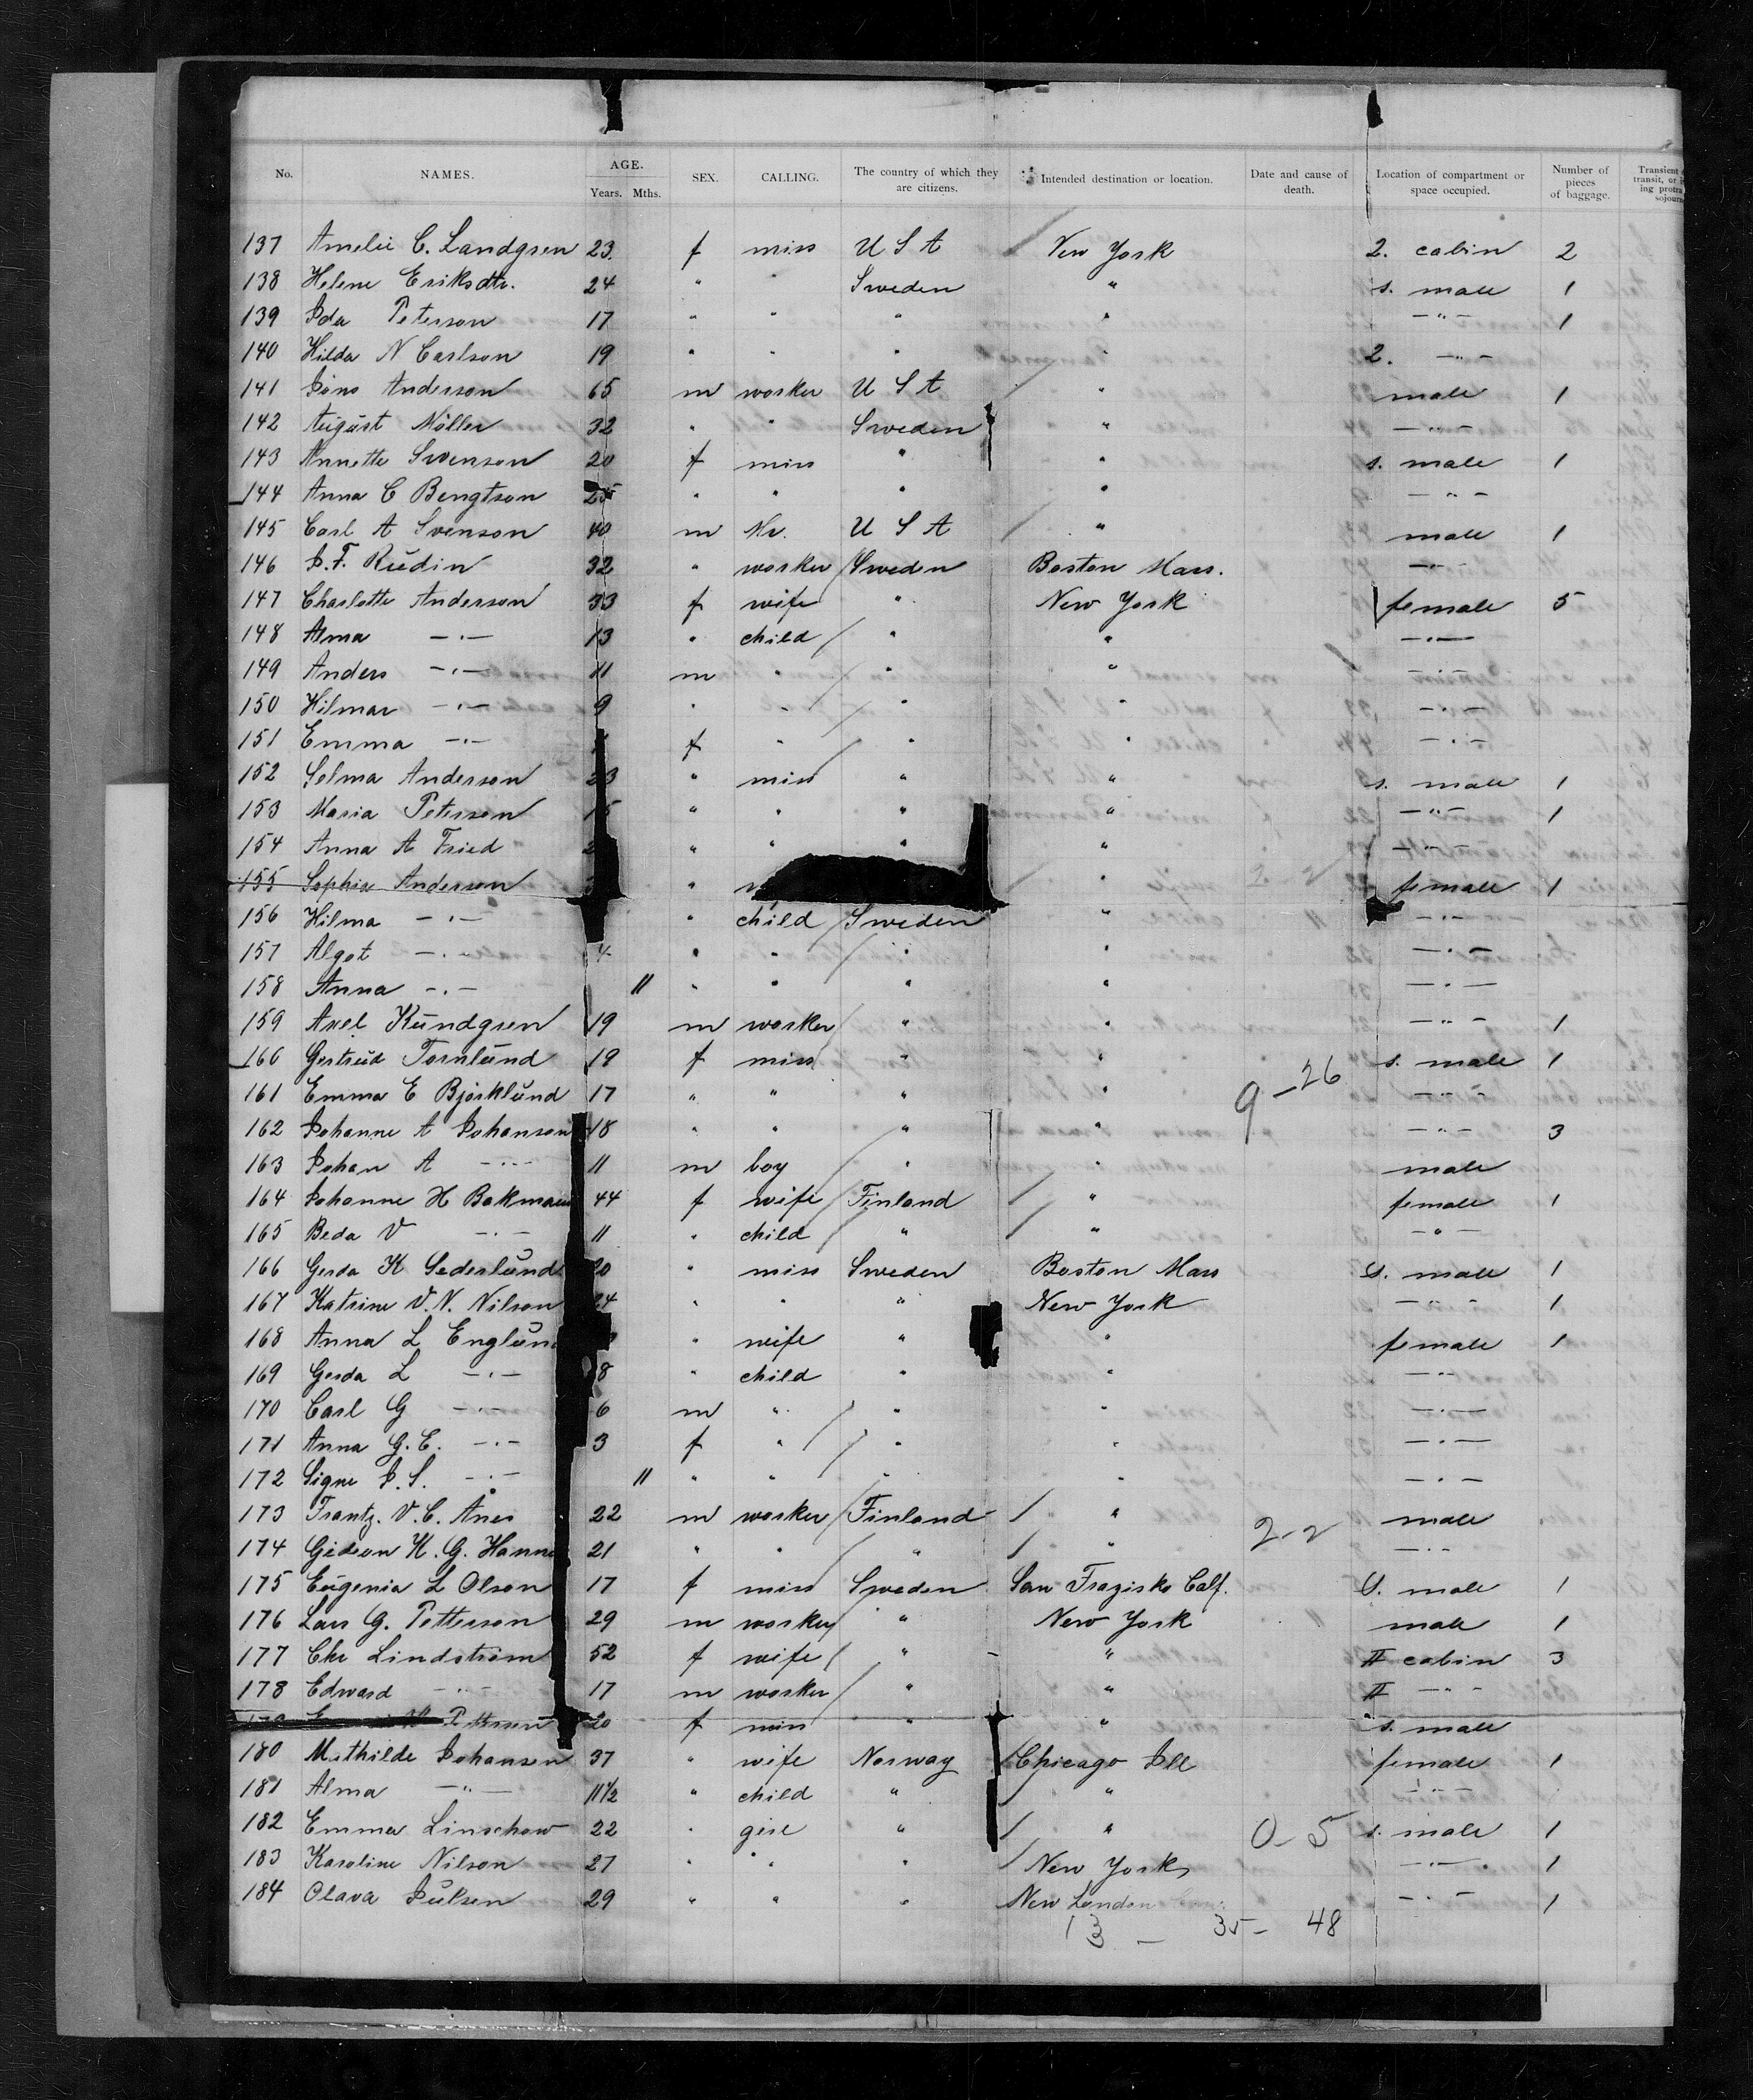 No. NAMES. AGE. Years. Mths. SEX. CALLING. The country of which they are citizens. Intended destination or location. Date and cause of death. Location of compartment or space occupied. Number of pieces of baggage. Transient
137 Amelie C. Landgren 23. f miss U S A New York 2. cabin 2
138 Helene Eriksdtr. 24 " " Sweden " s. male 1
139 Ida Peterson 17 " " " " —"— 1
140 Hilda N Carlson 19 " " " " 2. —"—
141 Jöns Anderson 65 m worker U S A " male 1
142 August Möller 32 " " Sweden " —"—
143 Annette Swenson 20 f miss " " s. male 1
144 Anna C Bengtson 25 " " " " —"—
145 Carl A Svenson 40 m Mr. U S A " male 1
146 J. F. Rudin 32 " worker Sweden Boston Mass. —"—
147 Charlotte Anderson 33 f wife " New York female 5
148 Alma —"— 13 " child " " —"—
149 Anders —"— 11 m " " " —"—
150 Hilmar —"— 9 " " " " —"—
151 Emma —"— f " " " —"—
152 Selma Anderson 23 " miss " " s. male 1
153 Maria Peterson 15 " " " " —"— 1
154 Anna A Fried 2 " " " " —"—
155 Sophia Anderson " " female 1
156 Hilma —"— " child Sweden " —"—
157 Algot —"— 4 " " " " —"—
158 Anna —"— 11 " " " " —"—
159 Axel Kundgren 19 m worker " " —"— 1
160 Gertrud Tornlund 19 f miss " " s. male 1
161 Emma E Björklund 17 " " " " 9-26 —"—
162 Johanne A Johanson 18 " " " " —"— 3
163 Johan A —"— 11 m boy " " male
164 Johanne H Bakmann 44 f wife Finland " female 1
165 Beda V —"— 11 " child " " —"—
166 Gerda K Sederlund 20 " miss Sweden Boston Mass s. male 1
167 Katrine V. N. Nilson 24 " " " New York —"— 1
168 Anna L Englund " wife " " female 1
169 Gerda L —"— 8 " child " " —"—
170 Carl G —"— 6 m " " " —"—
171 Anna G. E. —"— 3 f " " " —"—
172 Signe J. S. —"— 11 " " " " —"—
173 Frantz. V. C. Anes 22 m worker Finland " 2-2 male
174 Gideon K. G. Hanne 21 " " " " —"—
175 Eugenia L Olson 17 f miss Sweden San Frazisko Calf. s. male 1
176 Lars G. Petterson 29 m worker " New York male 1
177 Chr Lindström 52 f wife " " II cabin 3
178 Edward —"— 17 m worker " " II —"—
179 Petterson 20 f miss " " s. male
180 Mathilde Johansen 37 " wife Norway Chicago Ill female 1
181 Alma —"— 11½ " child " " —"—
182 Emma Linschow 22 " girl " " 0-5 s. male 1
183 Karoline Nilson 27 " " " New York —"— 1
184 Olava Julsen 29 " " " New London —"— 1
13 — 35 — 48